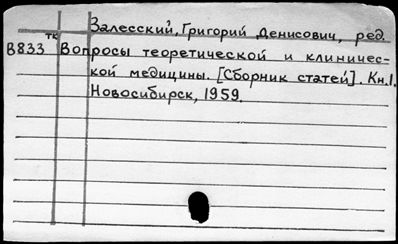 Залесский, Григорий Денисович, ред.
тк
В833 Вопросы теоретической и клиничес-
кой медицины. [Сборник статей]. Кн.1.
Новосибирск, 1959.